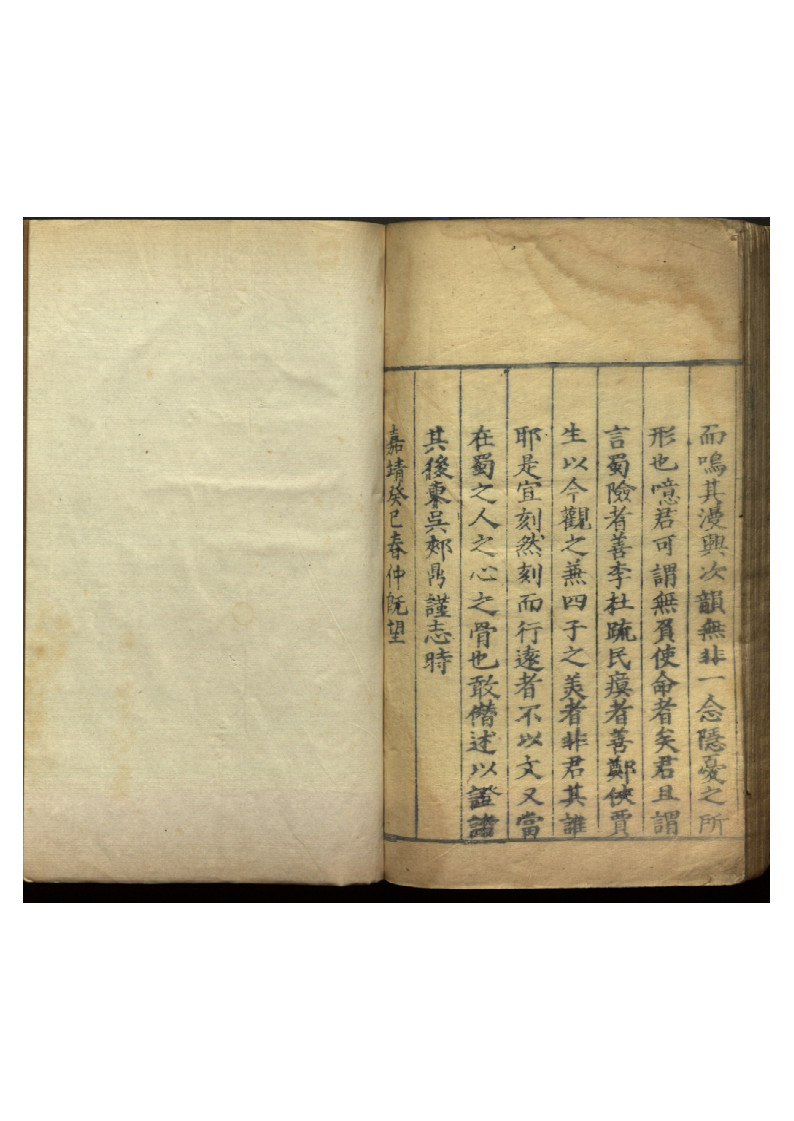 而鳴其漫興次韻無非一念隱憂之所
形也噫君可謂無負使命者矣君且謂
言蜀險者善李杜疏民瘼者善鄭俠賈
生以今觀之兼四子之美者非君其誰
耶是宜刻然刻而行遠者不以文又當
在蜀之人之心之骨也敢僭述以證諸
其後東吳郟鼎謹志時
嘉靖癸巳春仲既望